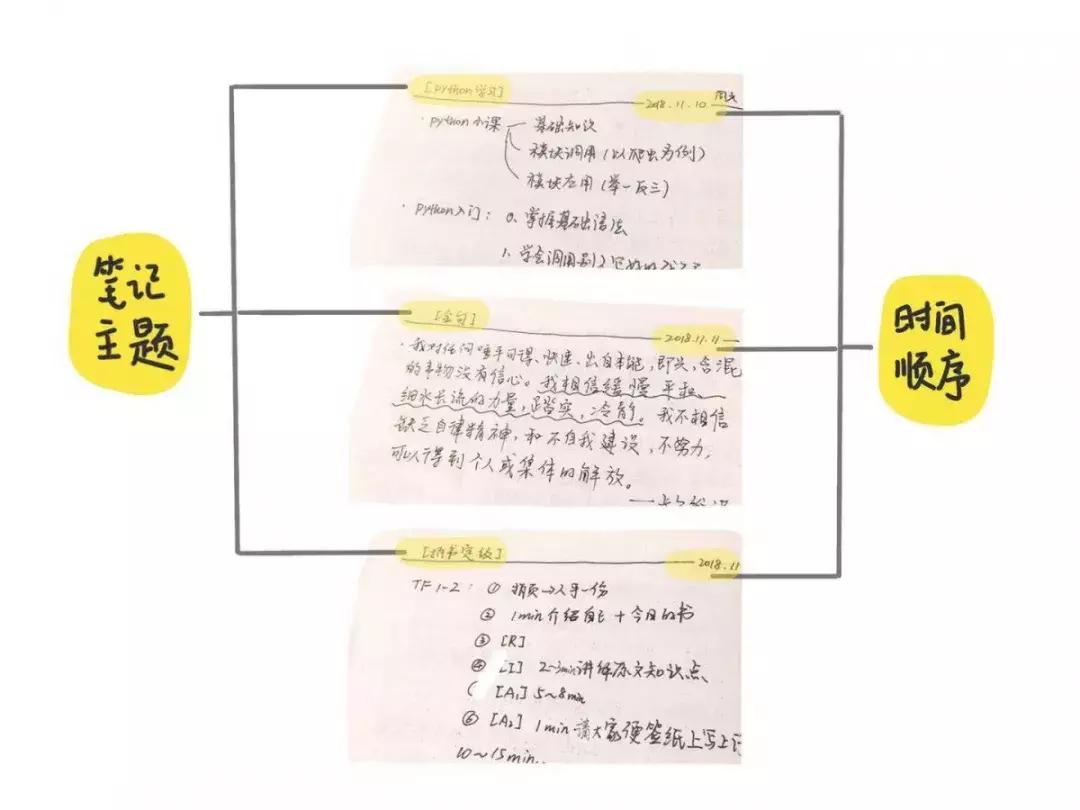 [python学习]
2018.11.10 周六
· python小课 基础知识
模块调用(以爬虫为例)
模块应用(举一反三)
· python入门: 0. 掌握基础语法
1. 学会调用别人写好的
笔记
主题
时间
顺序
[金句]
2018.11.11
· 我对任何唾手可得、快速、出自本能,即兴,含混
的事物没有信心。我相信缓慢 平和、
细水长流的力量,踏实,冷静。我不相信
缺乏自律精神,和不自我建设,不努力,
可以得到个人或集体的解放。
[拆书定级]
2018.11
TF1-2: ① 拆页→人手一份
② 1min介绍自己+今日的书
③ [R]
④ [I] 2~3min讲解原文知识点
[A₁] 5~8min
⑥ [A₂] 1min 请大家便签纸上写上
10~15min.